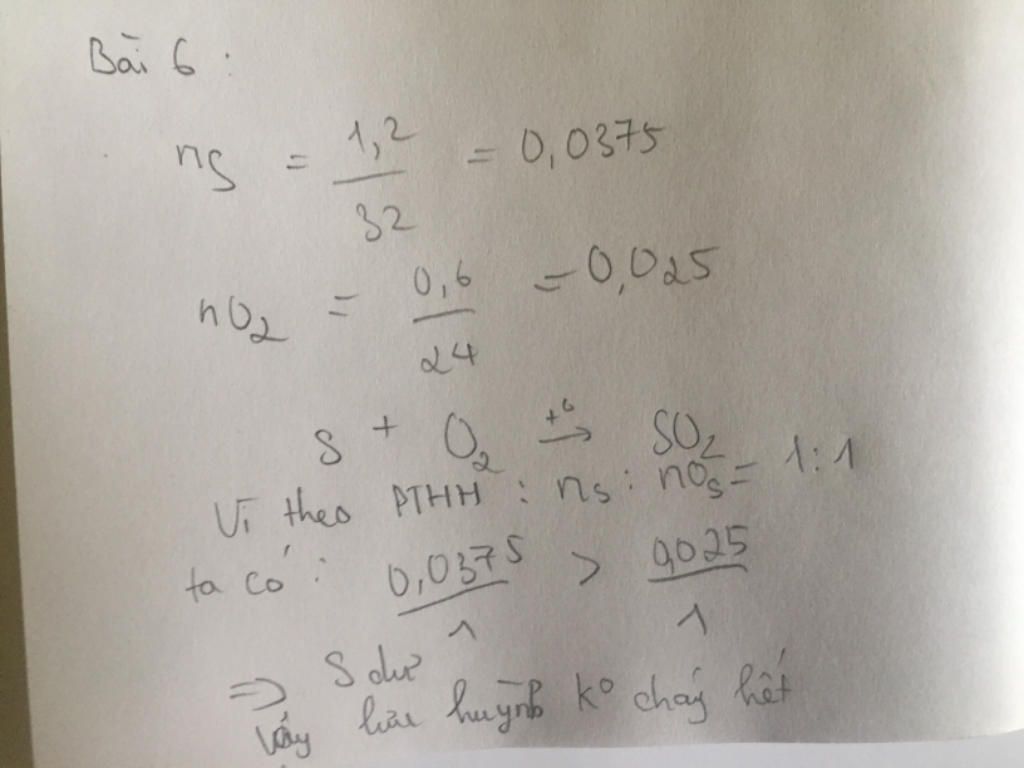 Bài 6 :
nS = 1,2/32 = 0,0375
nO2 = 0,6/24 = 0,025
S + O2 →(t°) SO2
Vì theo PTHH : nS : nOS = 1:1
ta có : 0,0375/1 > 0,025/1
=> S dư
Vậy lưu huỳnh ko cháy hết